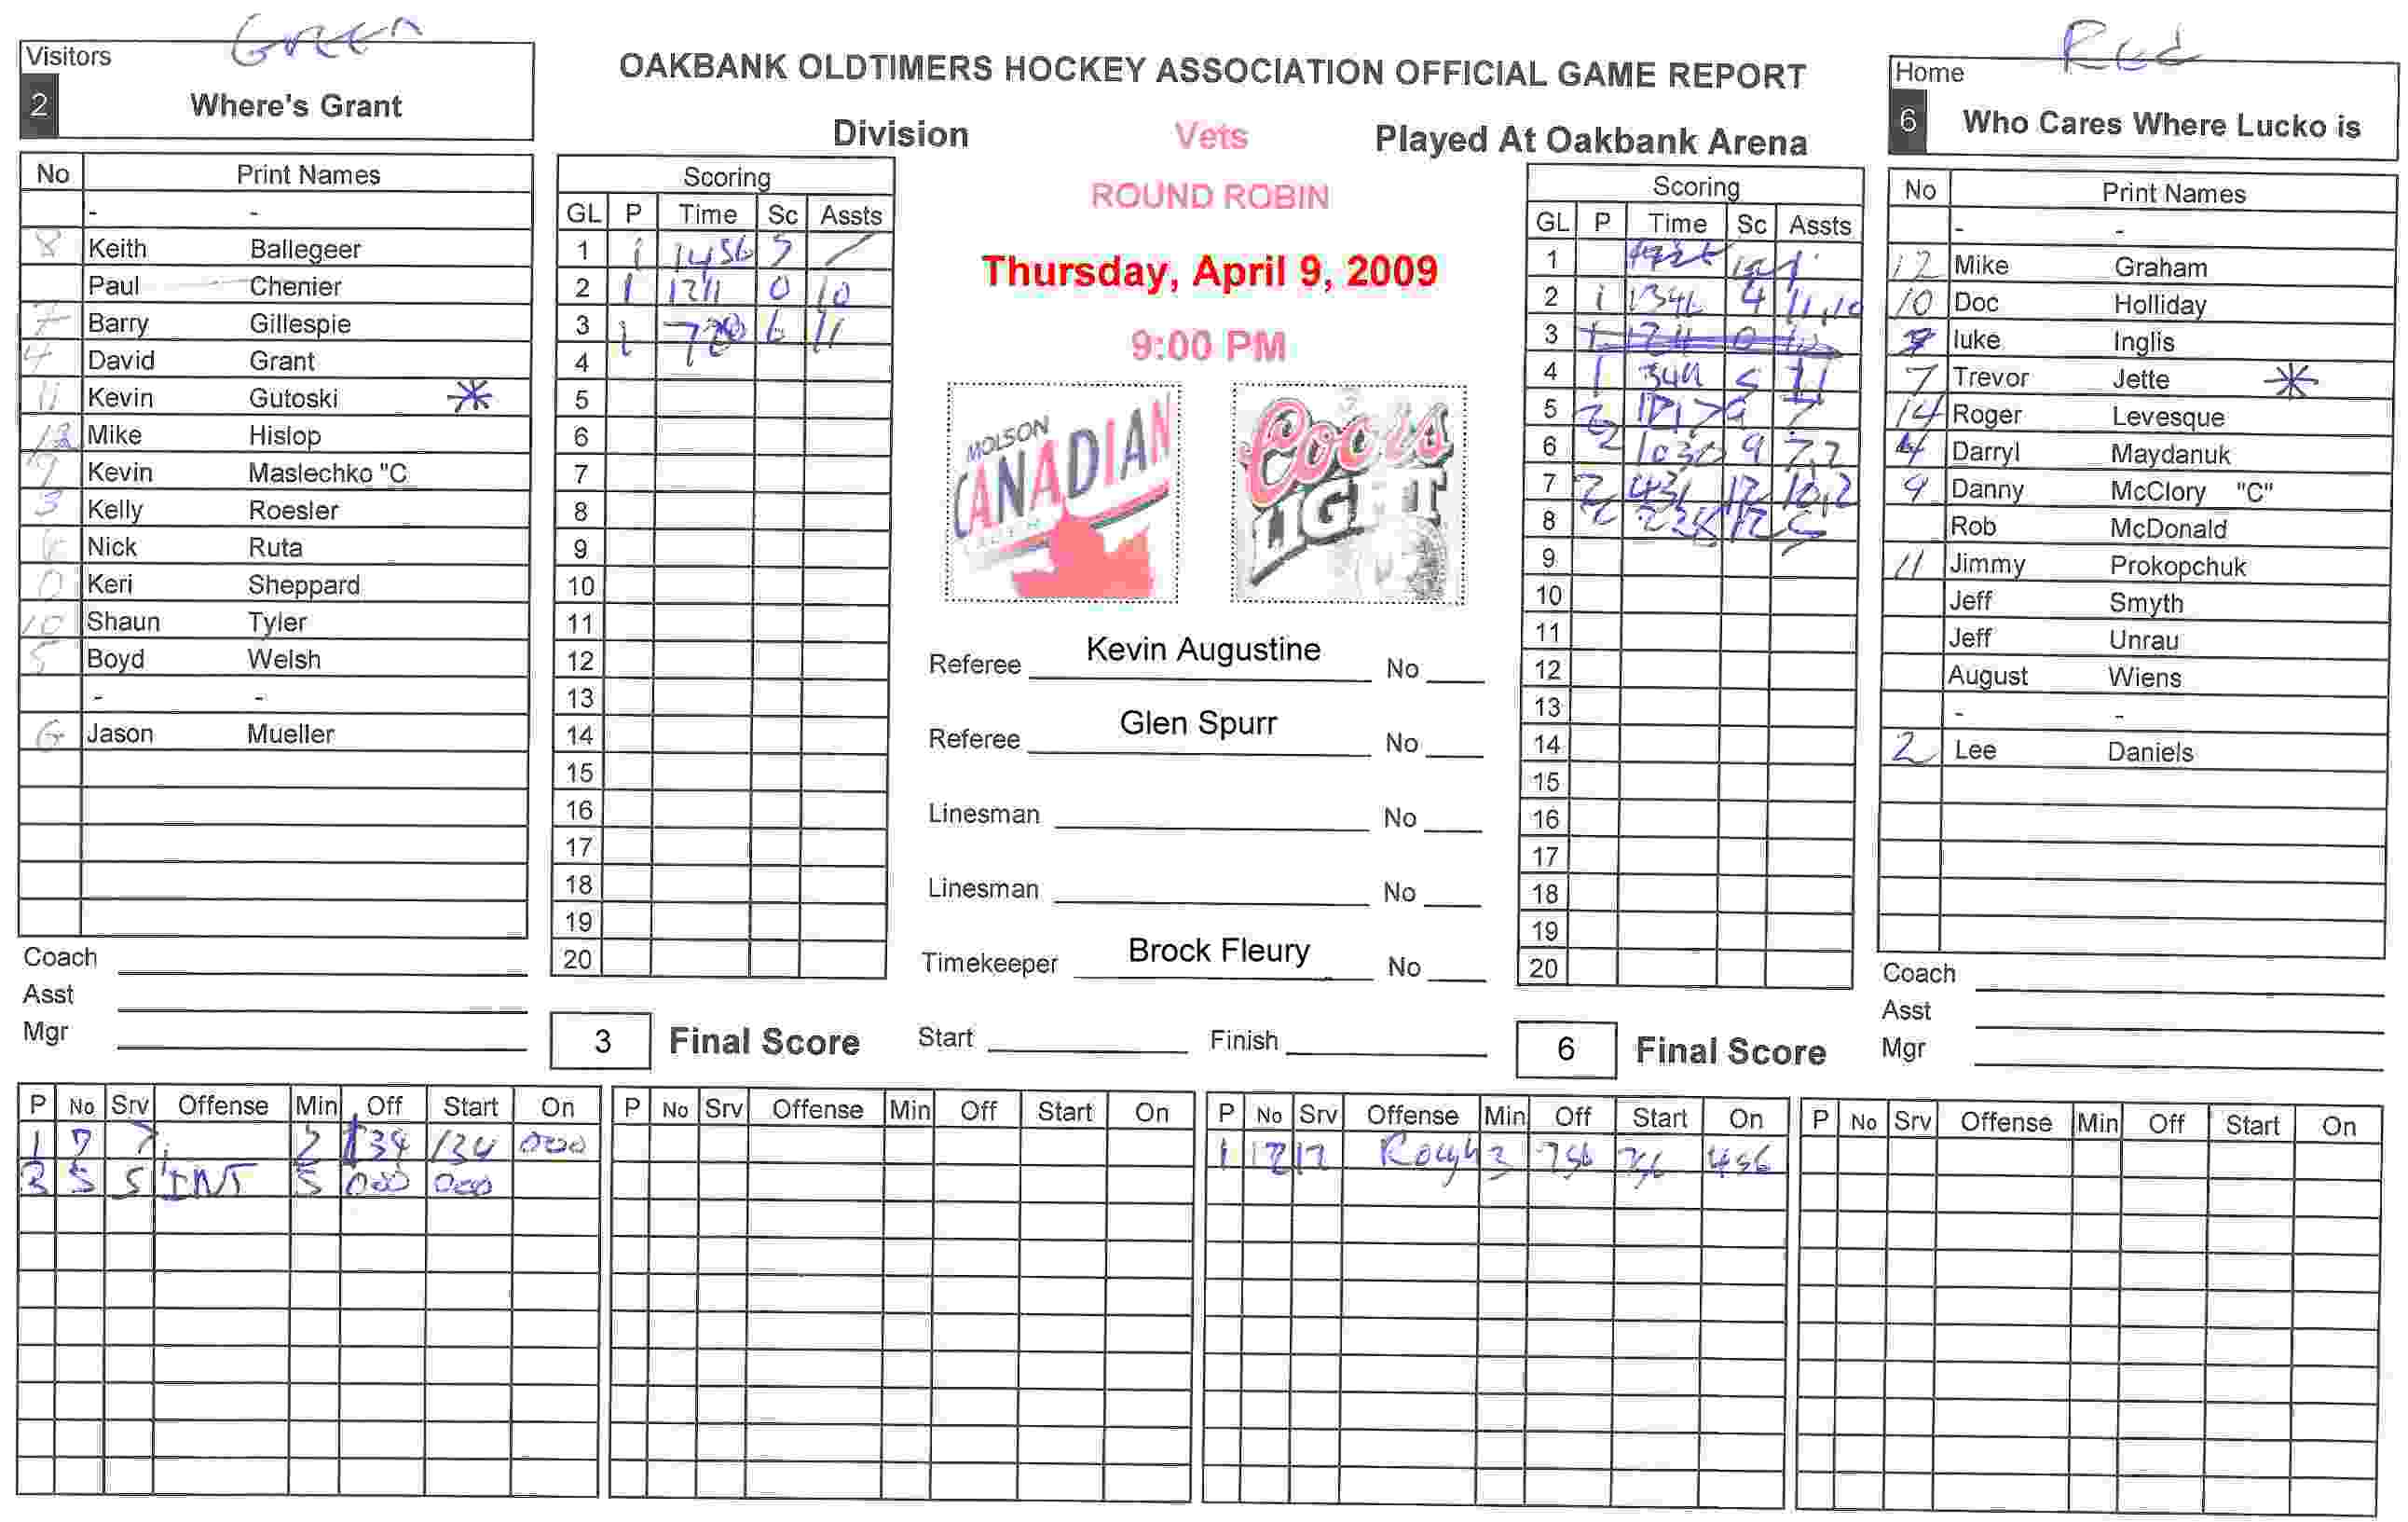 Green
Red
Visitors
2 Where's Grant
OAKBANK OLDTIMERS HOCKEY ASSOCIATION OFFICIAL GAME REPORT
Division Vets Played At Oakbank Arena
ROUND ROBIN
Thursday, April 9, 2009
9:00 PM
Home
6 Who Cares Where Lucko is
No Print Names
- -
8 Keith Ballegeer
Paul Chenier
7 Barry Gillespie
4 David Grant
11 Kevin Gutoski *
Mike Hislop
Kevin Maslechko "C
3 Kelly Roesler
6 Nick Ruta
0 Keri Sheppard
10 Shaun Tyler
5 Boyd Welsh
- -
G Jason Mueller
Coach
Asst
Mgr
Scoring
GL P Time Sc Assts
1 1 1456 5 /
2 1 1211 0 10
3 1 6 11
4
5
6
7
8
9
10
11
12
13
14
15
16
17
18
19
20
3 Final Score
MOLSON
CANADIAN
Coors
LIGHT
Referee Kevin Augustine No
Referee Glen Spurr No
Linesman No
Linesman No
Timekeeper Brock Fleury No
Start Finish
Scoring
GL P Time Sc Assts
1
2 1 4 11,10
3 1 1211 0 10
4 1 349 5 11
5 2 9 7
6 2 1030 9 7,2
7 2 431 12 10,2
8 2 12 5
9
10
11
12
13
14
15
16
17
18
19
20
6 Final Score
No Print Names
- -
12 Mike Graham
10 Doc Holliday
luke Inglis
7 Trevor Jette *
14 Roger Levesque
4 Darryl Maydanuk
9 Danny McClory "C"
Rob McDonald
11 Jimmy Prokopchuk
Jeff Smyth
Jeff Unrau
August Wiens
- -
2 Lee Daniels
Coach
Asst
Mgr
P No Srv Offense Min Off Start On
1 7 7 2 134 134 000
3 5 5 INT 5 000 000
P No Srv Offense Min Off Start On
P No Srv Offense Min Off Start On
1 12 12 Rough 3 756 756 456
P No Srv Offense Min Off Start On